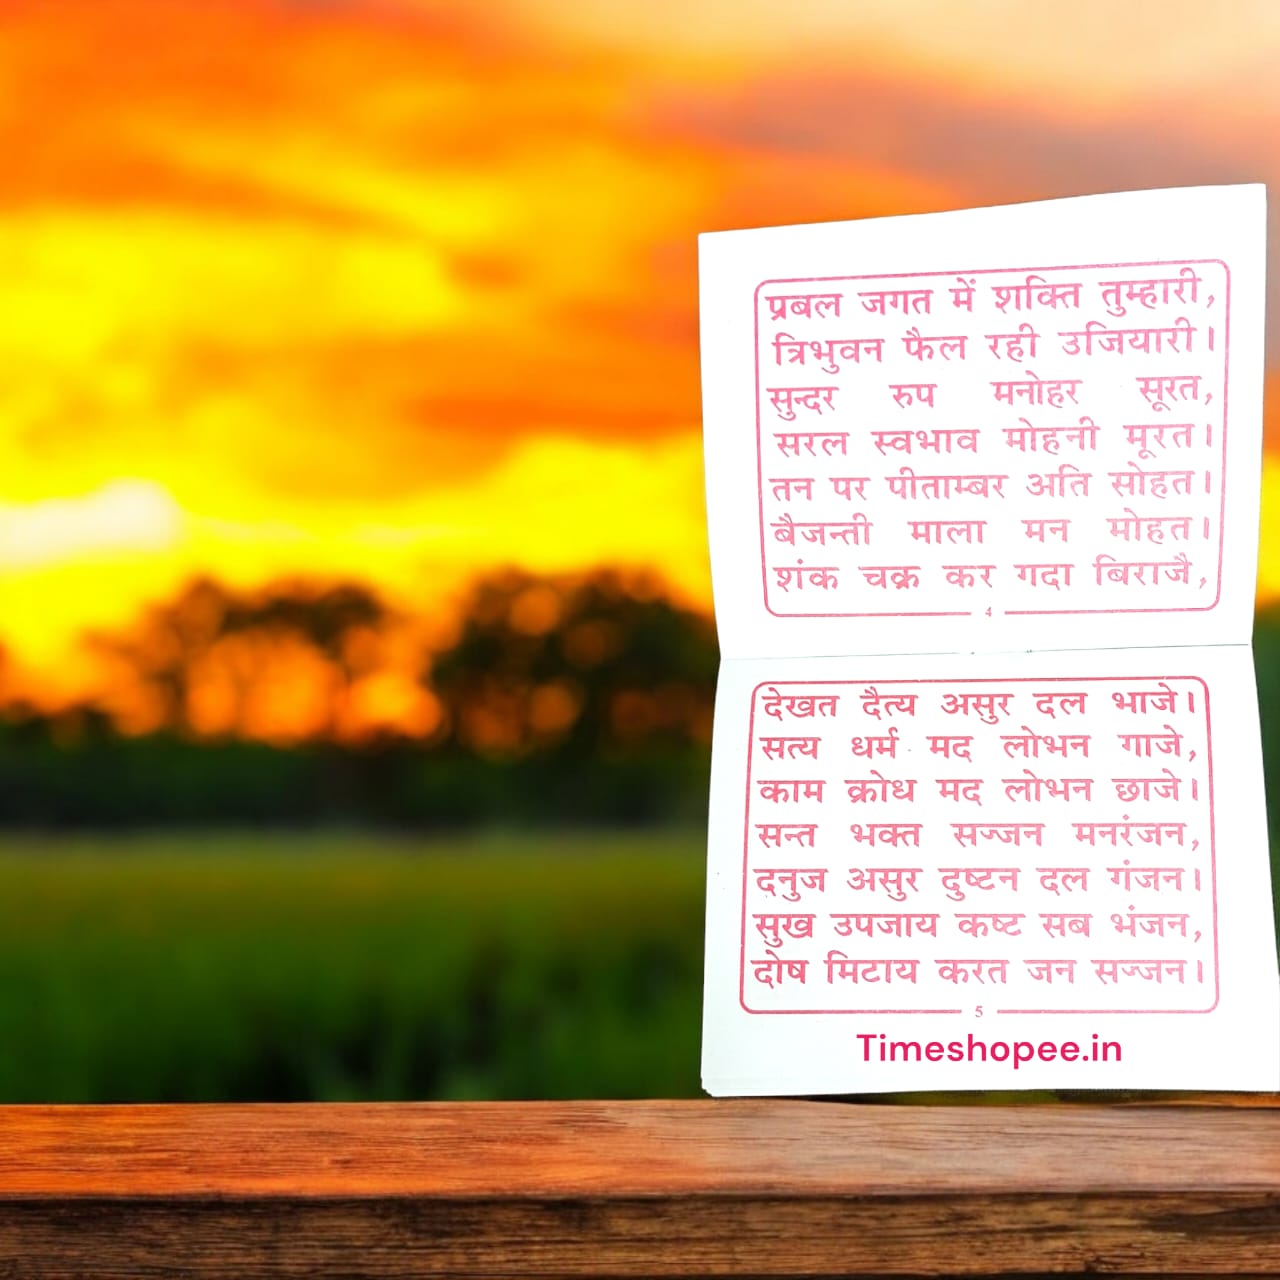 प्रबल जगत में शक्ति तुम्हारी,
त्रिभुवन फैल रही उजियारी।
सुन्दर रुप मनोहर सूरत,
सरल स्वभाव मोहनी मूरत।
तन पर पीताम्बर अति सोहत।
बैजन्ती माला मन मोहत।
शंक चक्र कर गदा बिराजै,
4
देखत दैत्य असुर दल भाजे।
सत्य धर्म मद लोभन गाजे,
काम क्रोध मद लोभन छाजे।
सन्त भक्त सज्जन मनरंजन,
दनुज असुर दुष्टन दल गंजन।
सुख उपजाय कष्ट सब भंजन,
दोष मिटाय करत जन सज्जन।
5
Timeshopee.in